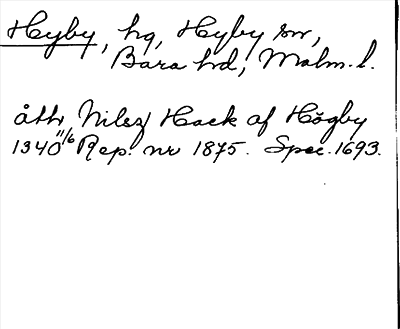 Hyby, hg, Hyby sn,
Bara hd, Malm. l.
åth Nilez Hack af Högby
1340 11/6 Rep. nr 1875. Spec. 1693.